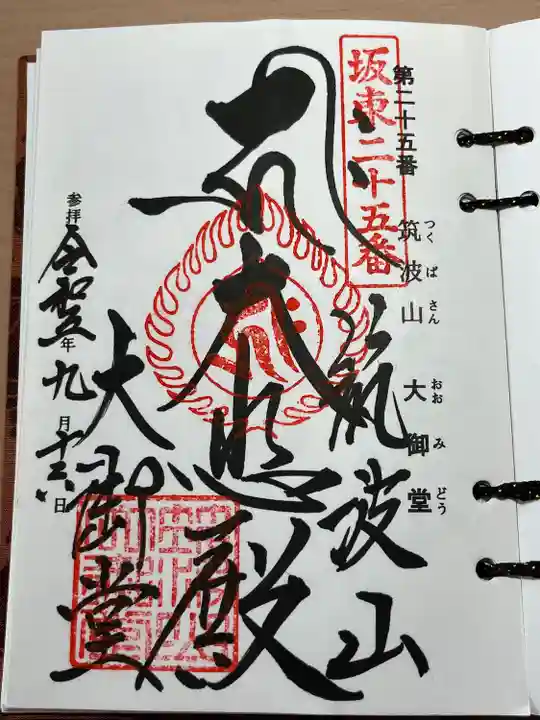 坂東二十五番
第二十五番
筑波山 大御堂
つくばさん おおみどう
筑波山
大悲殿
大御堂
参拝 令和五年九月十六日